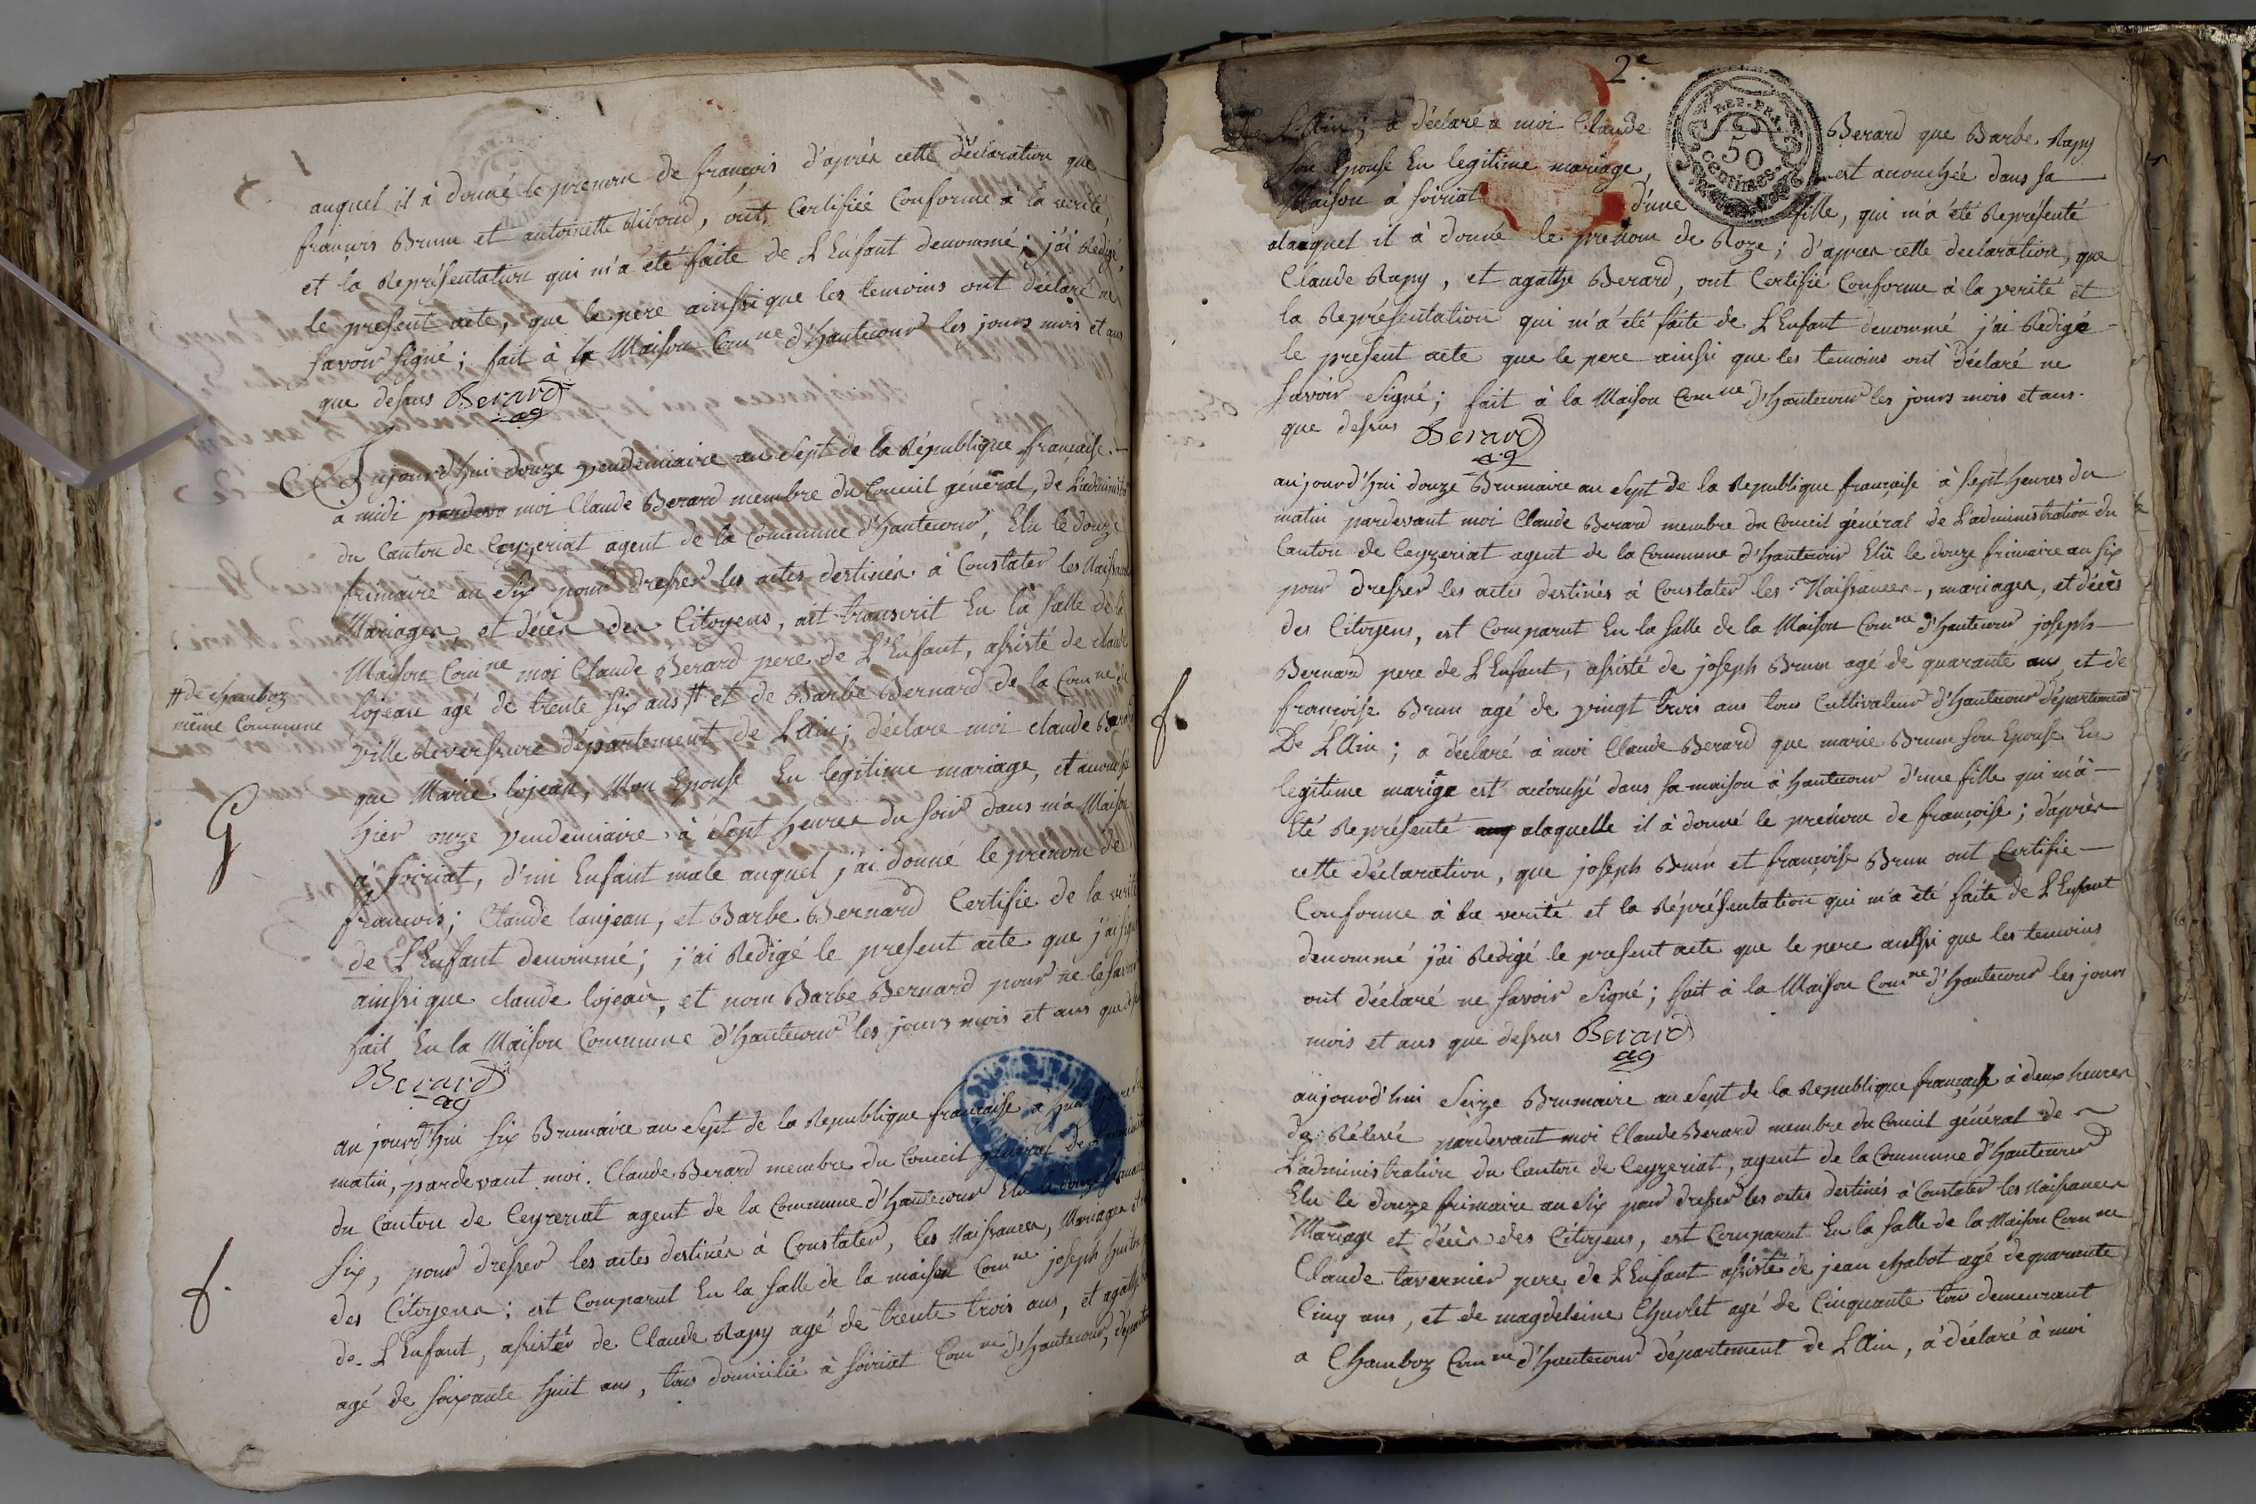 auquel il à donné le prenom de françois d'après cette déclaration que
françois Brun et antoinette Riboud, ont Certifiée Conforme à la verité,
et la Représentation qui m'a été faite de L'Enfant denommé; j'ai Rédigé
le present acte, que le pere ainssi que les temoins ont déclaré ne
savoir signé; fait à la Maison Com^ne d'hautecour les jours mois et ans
que dessus Berard
ag
Aujourd'hui douze vendemiaire an Sept de la République française.
a midi moi Claude Berard membre du Conceil général, de L'administ
du Canton de Ceyzeriat agent de la Commune d'hautecour, Elu le douze
frimaire an Six pour dresser les actes destinés à Constater les Naissance
Mariages, et décès des Citoyens, ait transcrit En la salle de la
Maison Com^ne moi Claude Berard pere de L'Enfant, assisté de claude
# de chamboz
même Commune
lojean agé de trente six ans # et de Barbe Bernard de la Com^ne de
ville Reversure département de L'Ain; déclare moi claude Berard
que Marie lojean, Mon Epouse En legitime mariage, et
hier onze vendemiaire à Sept heures du soir dans m'a Maison
G
à soiriat, d'un Enfant male auquel j'ai donné le prenom de
françois; Claude laujean, et Barbe Bernard Certifie de la verité
de L'Enfant denommé; j'ai Redigé le present acte que j'ai signé
ainssi que claude lojean, et nom Barbe Bernard pour ne le savoir
fait En la Maison Commune d'hautecour les jours mois et ans que
Berard
ag
au jourd'hui six Brumaire an Sept de la Republique française a
matin, pardevant moi Claude Berard membre du Conceil général de
du Canton de Ceyzeriat agent de la Commune d'hautecour Elu
Six, pour dresser les actes destinés à Constater, les Naissances, Mariages
des Citoyens; est Comparut En la salle de la maison Com^ne joseph
f.
de L'Enfant, assister de Claude Rapy agé de trente trois ans, et agathe
agé de soixante huit ans, tous domicilié à soiriat Com^ne d'hautecour,
2^e
REP. FRA.
50
centimes
De L'Ain; à déclaré a moi Claude Berard que Barbe Rapy
son Epouse En legitime mariage, est accouchée dans sa
Maison à soiriat d'une fille, qui m'a été Représenté
alaquel il à donné le prenom de Roze; d'apres cette declaration, que
Claude Rapy, et agathe Berard, ont Certifie Conforme à la verité et
la Représentation qui m'a été faite de L'Enfant denommé j'ai Redigée
le present acte que le pere ainssi que les temoins ont déclaré ne
savoir signé; fait à la Maison Com^ne d'hautecour les jours mois et ans.
que dessus Berard
ag
aujourd'hui douze Brumaire an Sept de la Republique française à Sept heures du
matin pardevant moi Claude Berard membre du Conceil général de L'administration du
Canton de Ceyzeriat agent de la Commune d'hautecour Elu le douze frimaire an six
pour dresser les actes destinés à Constater les Naissances, mariages, et décès
des Citoyens, est Comparut En la salle de la Maison Com^ne d'hautecour joseph
Bernard pere de L'Enfant, assisté de joseph Brun agé de quarante ans et de
f.
françoise Brun agé de vingt trois ans tous Cultivateur d'hautecour département
De L'Ain; a déclaré à moi Claude Berard que marie Brun son Epouse En
legitime mariga est accouché dans sa maison à hautecour d'une fille qui m'a
Eté Représenté alaquelle il à donné le prénom de françoise; d'après
cette déclaration, que joseph Brun et françoise Brun ont Certifie
Conforme à la verité et la Réprésentation qui m'a été faite de L'Enfant
denommé j'ai Redigé le present acte que le pere aussi que les temoins
ont déclaré ne savoir signé; fait à la Maison Com^ne d'hautecour les jours
mois et ans que dessus Berard
ag
aujourd'hui Seize Brumaire an Sept de la Republique française à deux heures
de Rélevée pardevant moi Claude Berard membre du Conceil général de
L'administration du Canton de Ceyzeriat, agent de la Commune d'hautecour
Elu le douze frimaire an six pour dresser les actes destinés à Constater les Naissances
Mariage et décès des Citoyens, est Comparut En la salle de la Maison Com^ne
Claude tavernier pere de L'Enfant assisté de jean chabot agé de quarante
Cinq ans, et de magdeleine Churlet agé de Cinquante tous demeurant
a Chamboz Com^ne d'hautecour département de L'Ain, à déclaré à moi